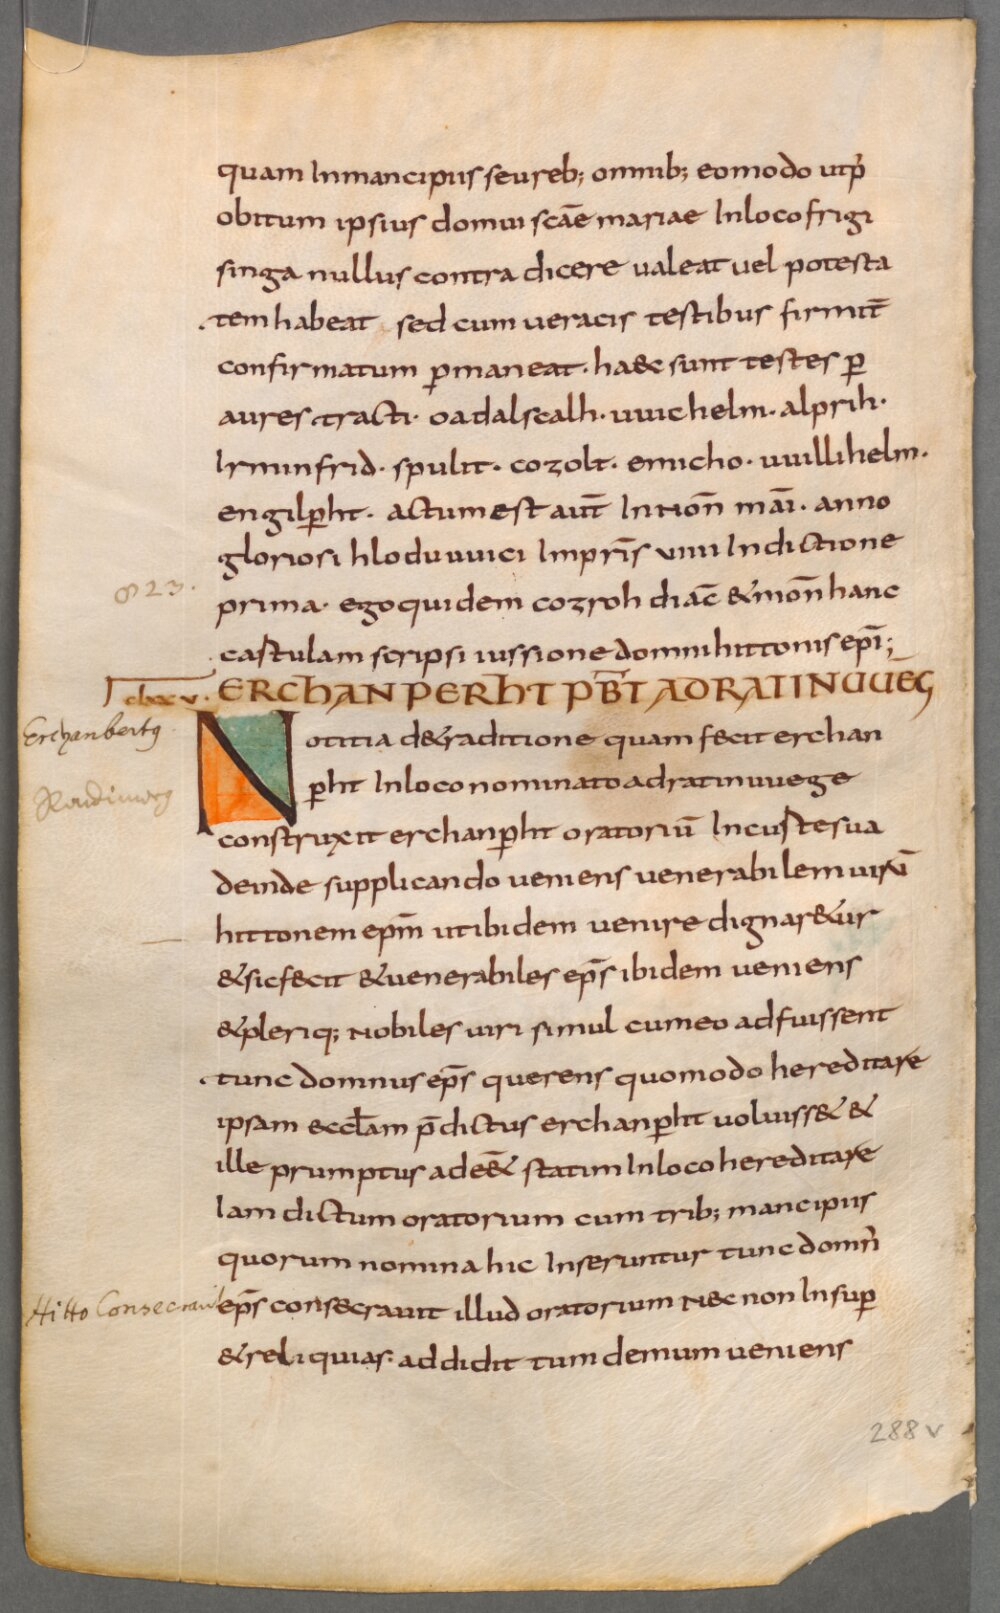 quam Inmancipiis seureb; omnib; eomodo utp̄
obitum ipsius domui sc̄ae mariae Inloco frigi
singa nullus contra dicere ualeat uel potesta
tem habeat sed cum ueracis testibus firmit̄
confirmatum p̱maneat· ha&c sunt testes p̱
aures tracti· oadalscalh· uuichelm· alprih·
Irminfrid· spulit· cozolt· emicho· uuillihelm·
engilp̱ht· actum est aut̄ In noñ māi· anno
gloriosi hloduuuici Impr̄is viiii Indictione
823.
prima· ego quidem cozroh diac̄ &mon̄ hanc
castulam scripsi iussione domni hittonis ep̄i;
clxxv· ERChANPERhT PB̄T ADRATINUUEG
Erchanbertg
otitia d&raditione quam fecit erchan
N
p̱ht Inloco nominato adratinuuege
construxit erchanp̱ht oratoriū Incuste sua
deinde supplicando ueniens uenerabilem uirū
hittonem ep̄m ut ibidem uenire dignar&ur
&sic fecit &uenerabiles ep̄s ibidem ueniens
&pleriq; nobiles uiri simul cum eo adfuissent
tunc domnus ep̄s querens quomodo hereditare
ipsam eccl̄am p̄dictus erchanp̱ht uoluiss& &
ille prumptus ade&̄ statim Inloco hereditare
Iam dictum oratorium cum trib; mancipiis
quorum nomina hic Inseruntur tunc domn̄
Hitto Consecrauit
ep̄s consecrauit illud oratorium nec non Insup̱
&reliquias· addidit tum demum ueniens
288 v